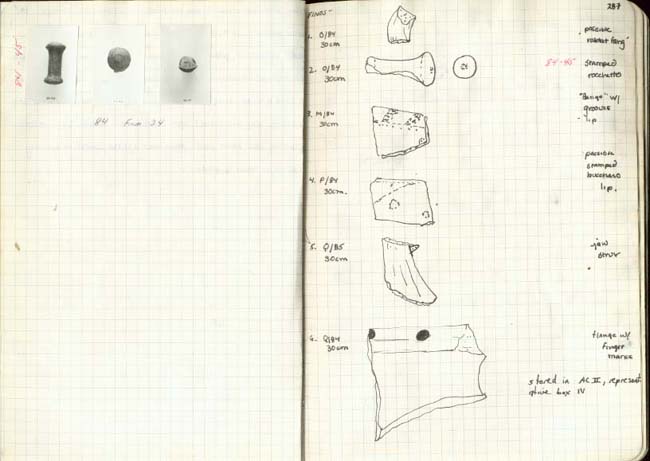 84-45
84 Find 24
287
FINDS-
1. O/84
30cm
possible
2. O/84
30cm
84-45
stamped
rocchetto
3. M/84
30cm
"Flange" w/
groove
lip
4. P/84
30cm.
possible
stamped
bucchero
lip.
5. Q/85
30cm
jaw
strut
6. Q/84
30cm
flange w/
finger
marks
stored in AC II, represent
ative box IV